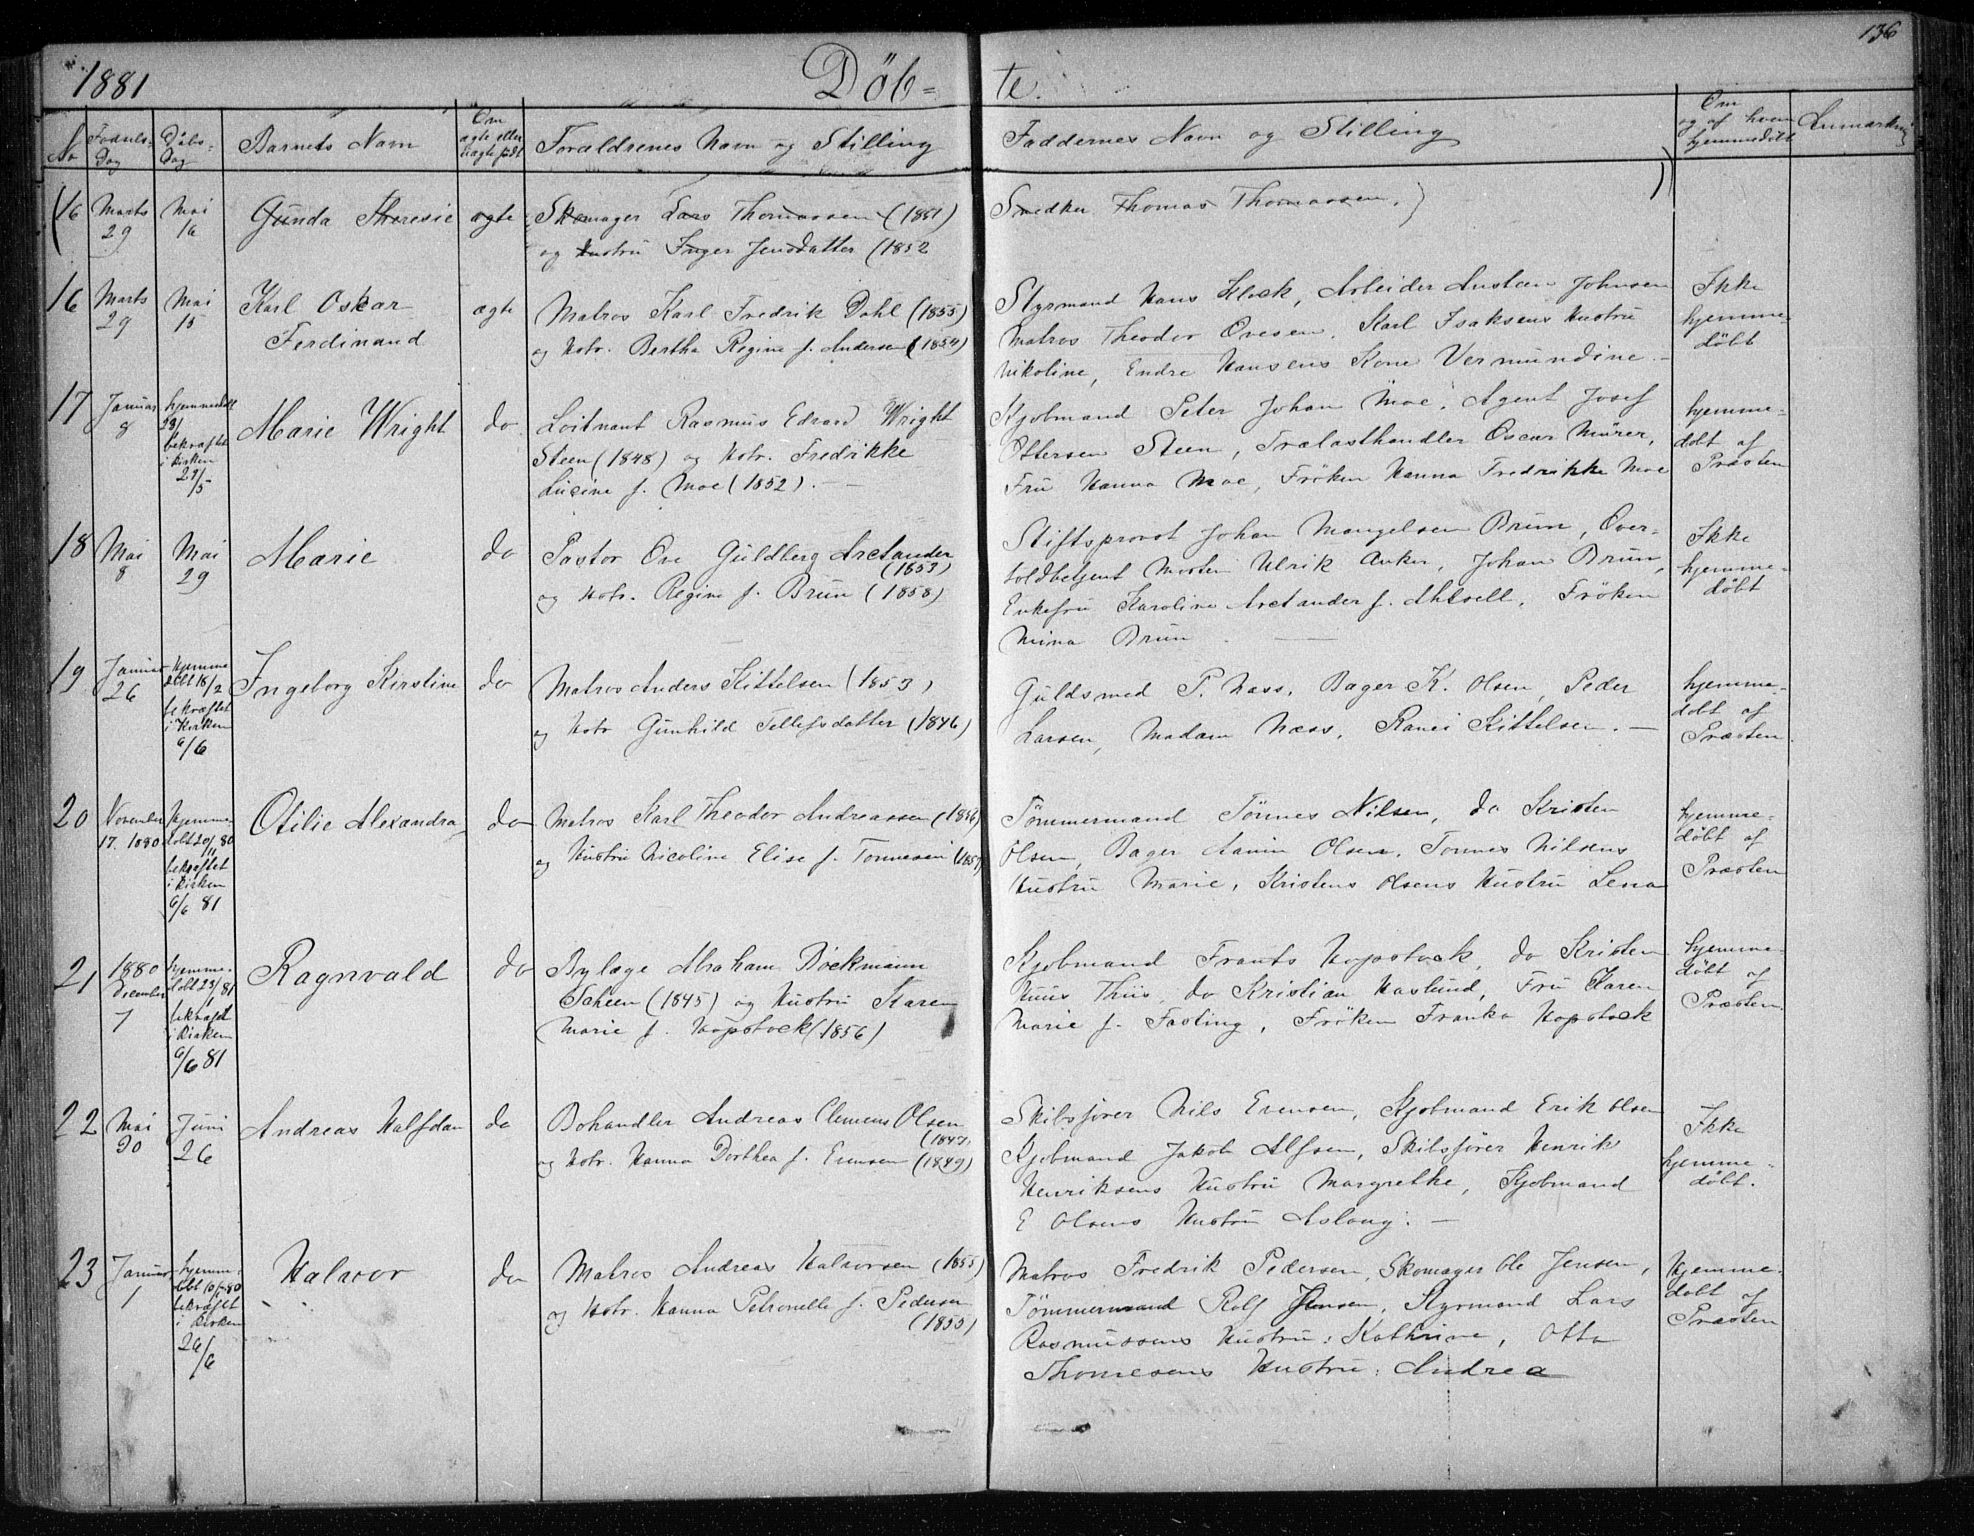 1881 Døb= te. 136
No Fødsels- Dag Døbs- Dag Barnets Navn Om ægte eller uægte født Forældrenes Navn og Stilling Faddernes Navn og Stilling Om og af hvem hjemmedøbt Anmærkning
(16 Marts 29 Mai 16 Gunda Theresie ægte Skomager Lars Thomassen (1851) Snedker Thomas Thomassen.)
og Hustru Inger Jensdatter (1852
16 Marts 29 Mai 15 Karl Oskar Ferdinand ægte Matros Karl Fredrik Dahl (1855)
og Hstr. Bertha Regine f. Andersen (1854)
Styrmand Hans Klock, Arbeider Austen Johnsen
Matros Theodor Ovesen, Karl Isaksens Hustru
Nikoline, Endre Hansens Kone Vermundine.
Ikke
hjemme-
døbt
17 Januar 8 hjemmedøbt bekræftet i Kirken 29/5 Marie Wright do Loitnant Rasmus Edvard Wright
Steen (1848) og Hstr. Fredrikke
Lucine f. Moe (1852). —
Kjøbmand Peter Johan Moe, Agent Josef
Ottersen Steen, Trælasthandler Oscar Mürer,
Fru Hanna Moe, Frøken Hanna Fredrikke Moe
hjemme-
døbt af
Præsten
18 Mai 8 Mai 29 Marie do Pastor Ove Guldberg Arctander
(1853)
og Hstr. Regine f. Brun (1858)
Stiftsprovst Johan Mangelsen Brun, Over-
toldbetjent Morten Ulrik Anker, Johan Brun,
Enkefru Karoline Arctander f. Frøken
Mina Brun. —
Ikke
hjemme-
døbt
19 Januar 26 Hjemme døbt 18/2 bekræftet i Kirken 6/6 Ingeborg Kirstine do Matros Anders Kittelsen (1853)
og Hstr Gunhild Tellefsdatter (1846)
Guldsmed P. Næss, Bager K. Olsen, Peder
Larsen, Madam Næss, Kittelsen. —
hjemme-
døbt af
Præsten.
20 November 17. 1880 Hjemme døbt 20/11 80 bekræftet i Kirken 6/6 81 Otilie Alexandra do Matros Karl Theodor Andreassen (1856)
og Hustru Nicoline Elise f. Tønnesen
Tømmermand Tønnes Nilsen, do Kristen
Olsen, Bager Olsen, Tønnes Nilsens
Hustru Marie, Kristens Olsens Hustru Lena
hjemme-
døbt af
Præsten
21 1880 December 7 hjemme- døbt 23/1 81 bekræftet i Kirken 6/6 81 Ragnvald do Bylæge Abraham Bøckmann
Scheen (1845) og Hustru Karen
Marie f. Hopstock (1856)
Kjøbmand Frants Hopstock, do Kristen
Huus Thiis, do Kristian Haslund, Fru Karen
Marie f. Fasting, Frøken Franka Hopstock
hjemme-
døbt af
Præsten.
22 Mai 30 Juni 26 Andreas Halfdan do Bohandler Andreas Clemens Olsen
(1847)
og Hstr. Hanna Dorthea f. Evensen (1849)
Skibsfører Nils Evensen, Kjøbmand Erik Olsen
Kjøbmand Jakob Alfsen, Skibsfører Henrik
Henriksens Hustru Margrethe, Kjøbmand
E Olsens Hustru Aslaug. —
Ikke
hjemme-
døbt.
23 Januar 1 hjemme døbt bekræftet i Kirken 26/6 Halvor do Matros Andreas Halvorsen (1855)
og Hstr. Hanna Petronelle f. Pedersen
(1855)
Matros Fredrik Pedersen, Skomager Ole Jensen,
Tømmermand Rolf Jensen, Styrmand Lars
Rasmussens Hustru: Kathrine, Otto
Thomesens Hustru: Andrea
Hjemme-
døbt af
Præsten